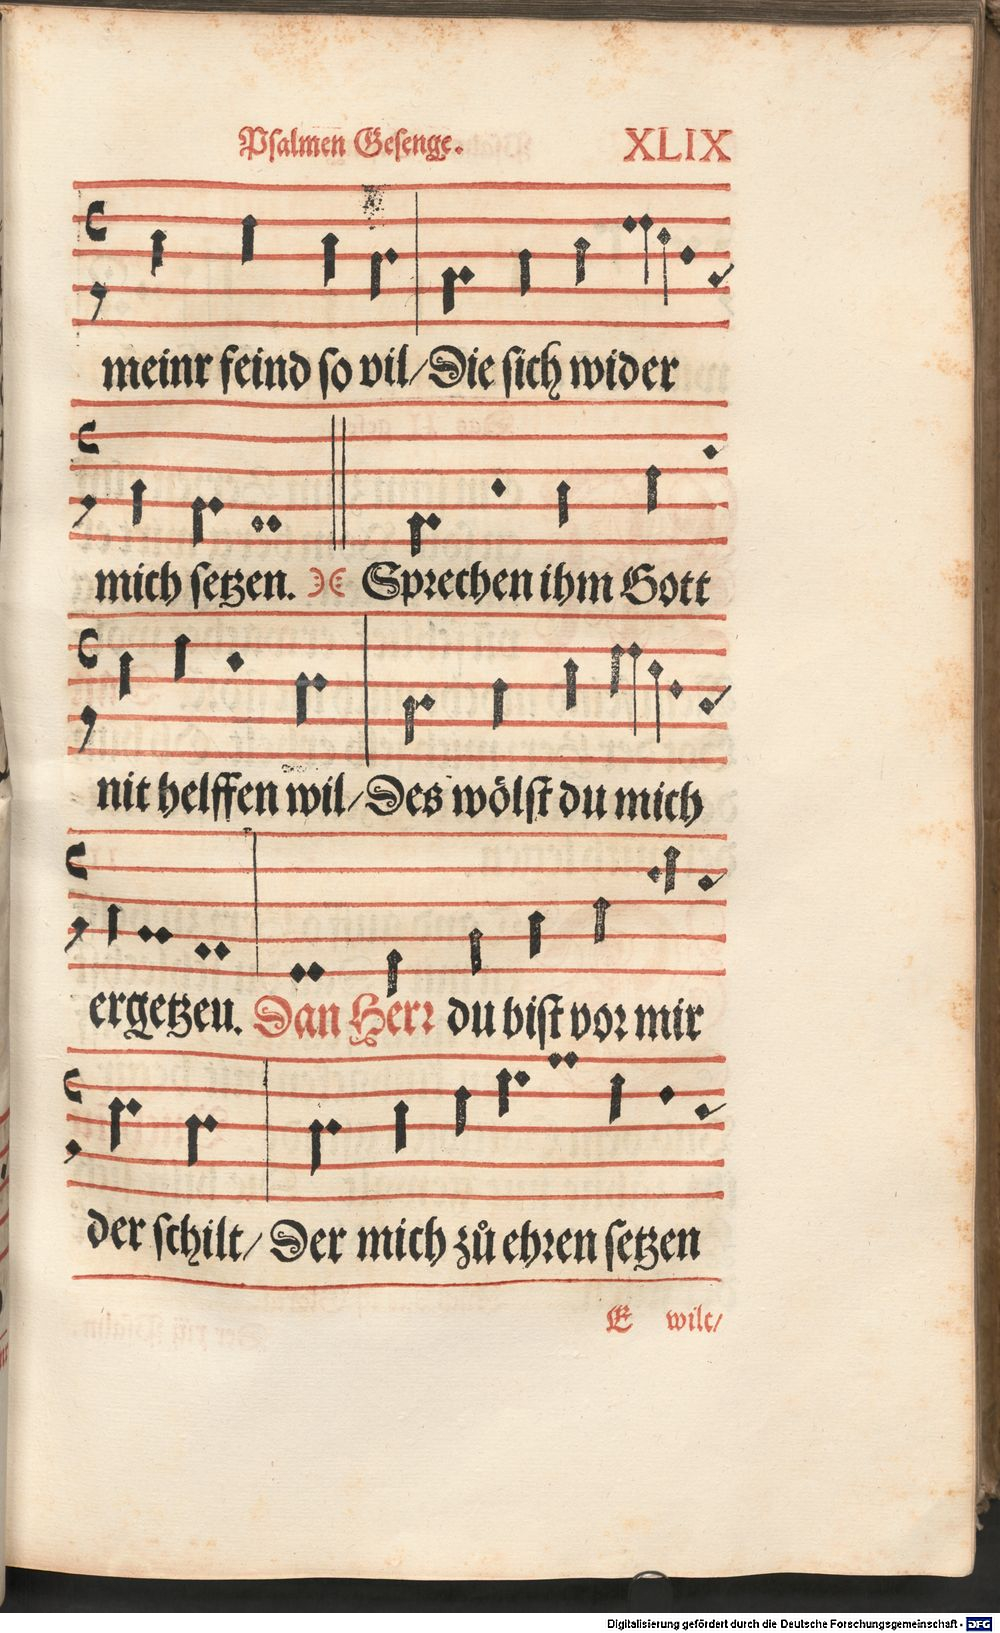 Psalmen Gesenge. XLIX
meinr feind so vil/ Die sich wider
mich setzen. Sprechen ihm Gott
nit helffen wil/ Des wölst du mich
ergetzen. Dan Herr du bist vor mir
der schilt/ Der mich zů ehren setzen
E wilt/
Digitalisierung gefördert durch die Deutsche Forschungsgemeinschaft - DFG